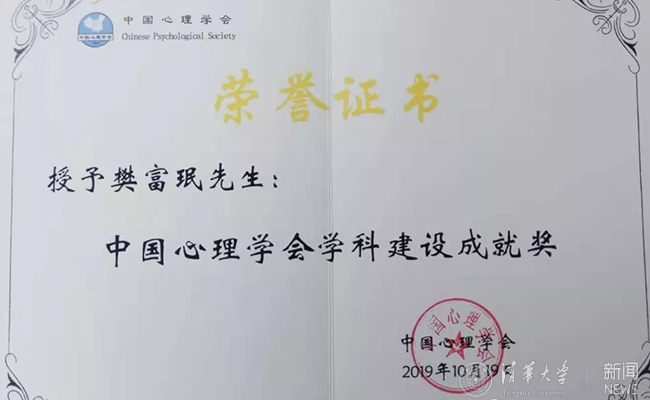 中国心理学会
Chinese Psychological Society
中国心理学会
荣誉证书
授予樊富珉先生：
中国心理学会学科建设成就奖
中国心理学会
中国心理学会
2019年10月19日
清华大学
Tsinghua University
新闻
NEWS